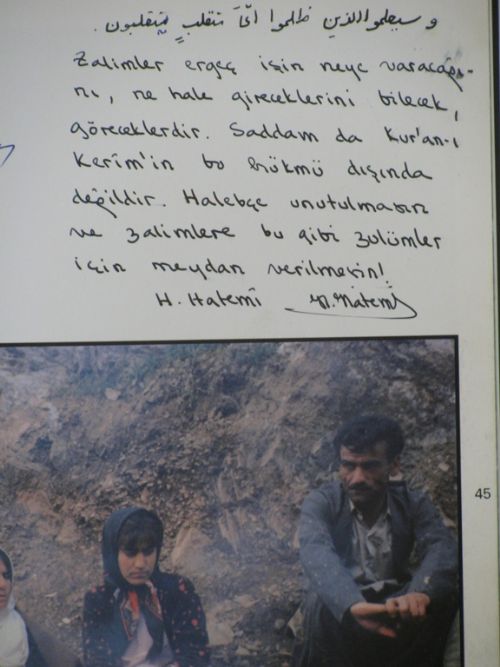 و سيعلموا الذين ظلموا أىّ منقلبٍ ينقلبون.
Zalimler ergeç işin neye varacağı-
nı, ne hale gireceklerini bilecek,
göreceklerdir. Saddam da Kur'an-ı
Kerîm'in bu hükmü dışında
değildir. Halebçe unutulmasın
ve zalimlere bu gibi zulümler
için meydan verilmesin!
H. Hatemî H. Hatemî
45